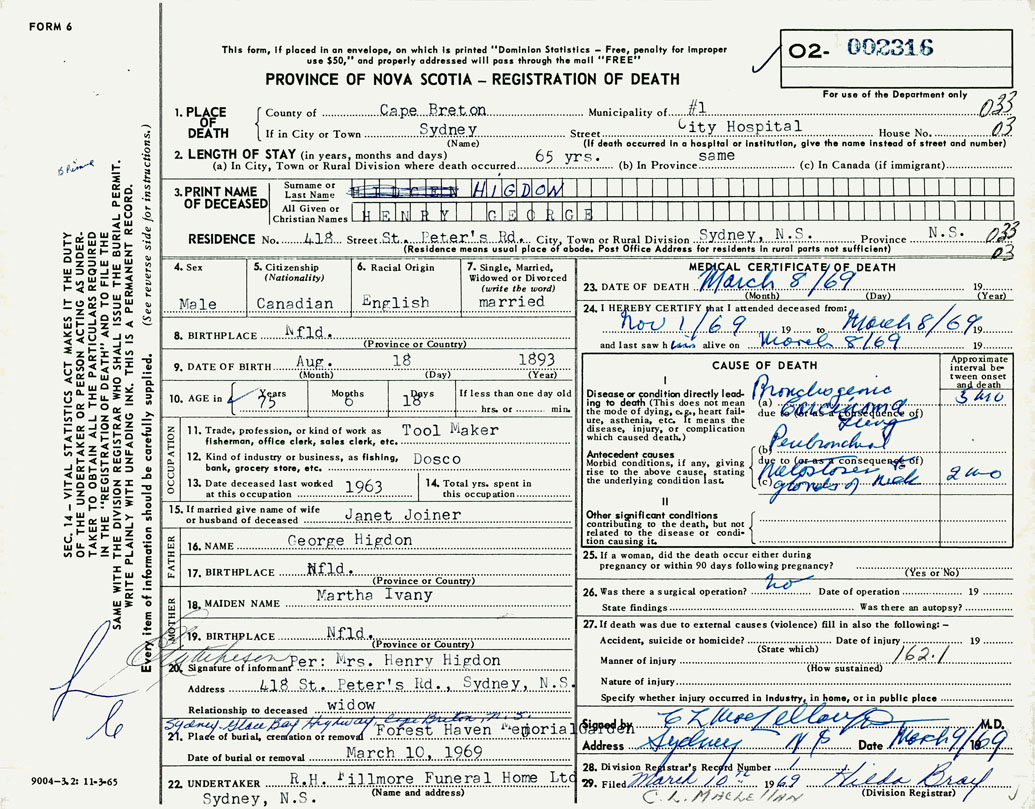 FORM 6
This form, if placed in an envelope, on which is printed "Dominion Statistics – Free, penalty for improper
use $50," and properly addressed will pass through the mail "FREE"
PROVINCE OF NOVA SCOTIA – REGISTRATION OF DEATH
O2- 002316
For use of the Department only
SEC. 14 – VITAL STATISTICS ACT MAKES IT THE DUTY
OF THE UNDERTAKER OR PERSON ACTING AS UNDER-
TAKER TO OBTAIN ALL THE PARTICULARS REQUIRED
IN THE "REGISTRATION OF DEATH" AND TO FILE THE
SAME WITH THE DIVISION REGISTRAR WHO SHALL ISSUE THE BURIAL PERMIT.
WRITE PLAINLY WITH UNFADING INK. THIS IS A PERMANENT RECORD.
Every item of information should be carefully supplied. (See reverse side for instructions.)
1. PLACE OF DEATH
County of Cape Breton Municipality of #1 033
If in City or Town Sydney Street City Hospital House No. 03
(Name) (If death occurred in a hospital or institution, give the name instead of street and number)
2. LENGTH OF STAY (in years, months and days)
(a) In City, Town or Rural Division where death occurred 65 yrs. (b) In Province same (c) In Canada (if immigrant)
3. PRINT NAME OF DECEASED
Surname or Last Name HIGDON
All Given or Christian Names HENRY GEORGE
RESIDENCE No. 418 Street St. Peter's Rd. City, Town or Rural Division Sydney, N.S. Province N.S. 033
(Residence means usual place of abode. Post Office Address for residents in rural parts not sufficient) 03
4. Sex Male
5. Citizenship (Nationality) Canadian
6. Racial Origin English
7. Single, Married, Widowed or Divorced (write the word) married
8. BIRTHPLACE Nfld.
(Province or Country)
9. DATE OF BIRTH Aug. 18 1893
(Month) (Day) (Year)
10. AGE in Years 75 Months 6 Days 18 If less than one day old
hrs. or min.
OCCUPATION
11. Trade, profession or kind of work as Tool Maker
fisherman, office clerk, sales clerk, etc.
12. Kind of industry or business, as fishing, Dosco
bank, grocery store, etc.
13. Date deceased last worked at this occupation 1963
14. Total yrs. spent in this occupation
15. If married give name of wife or husband of deceased Janet Joiner
FATHER
16. NAME George Higdon
17. BIRTHPLACE Nfld.
(Province or Country)
MOTHER
18. MAIDEN NAME Martha Ivany
19. BIRTHPLACE Nfld.
(Province or Country)
20. Signature of informant Per: Mrs. Henry Higdon
Address 418 St. Peter's Rd., Sydney, N.S.
Relationship to deceased widow
Sydney Glace Bay Highway, Cape Breton, N.S.
21. Place of burial, cremation or removal Forest Haven Memorial Garden
Date of burial or removal March 10, 1969
22. UNDERTAKER R.H. Fillmore Funeral Home Ltd
(Name and address)
Sydney, N.S.
9004-3.2: 11-3-65
MEDICAL CERTIFICATE OF DEATH
23. DATE OF DEATH March 8/69 19
(Month) (Day) (Year)
24. I HEREBY CERTIFY that I attended deceased from:
Nov 1/69 19 to March 8/69 19
and last saw him alive on March 8/69 19
CAUSE OF DEATH
Approximate interval between onset and death
I
Disease or condition directly leading to death (This does not mean the mode of dying, e.g., heart failure, asthenia, etc. It means the disease, injury, or complication which caused death.)
(a) Bronchogenic Carcinoma Lung 3 mo
due to (or as a consequence of)
Antecedent causes
Morbid conditions, if any, giving rise to the above cause, stating the underlying condition last.
(b) Peribronchial
due to (or as a consequence of)
(c) Metastases to glands of neck 2 mo
II
Other significant conditions
contributing to the death, but not
related to the disease or condi-
tion causing it.
25. If a woman, did the death occur either during
pregnancy or within 90 days following pregnancy?
(Yes or No)
26. Was there a surgical operation? no Date of operation 19
State findings Was there an autopsy?
27. If death was due to external causes (violence) fill in also the following: –
Accident, suicide or homicide? Date of injury 19
(State which)
Manner of injury 162.1
(How sustained)
Nature of injury
Specify whether injury occurred in industry, in home, or in public place
Signed by M.D.
Address Sydney N S Date March 9/69
28. Division Registrar's Record Number
29. Filed March 10th 1969 Hilda Bray
C. L. MACLELLAN (Division Registrar)